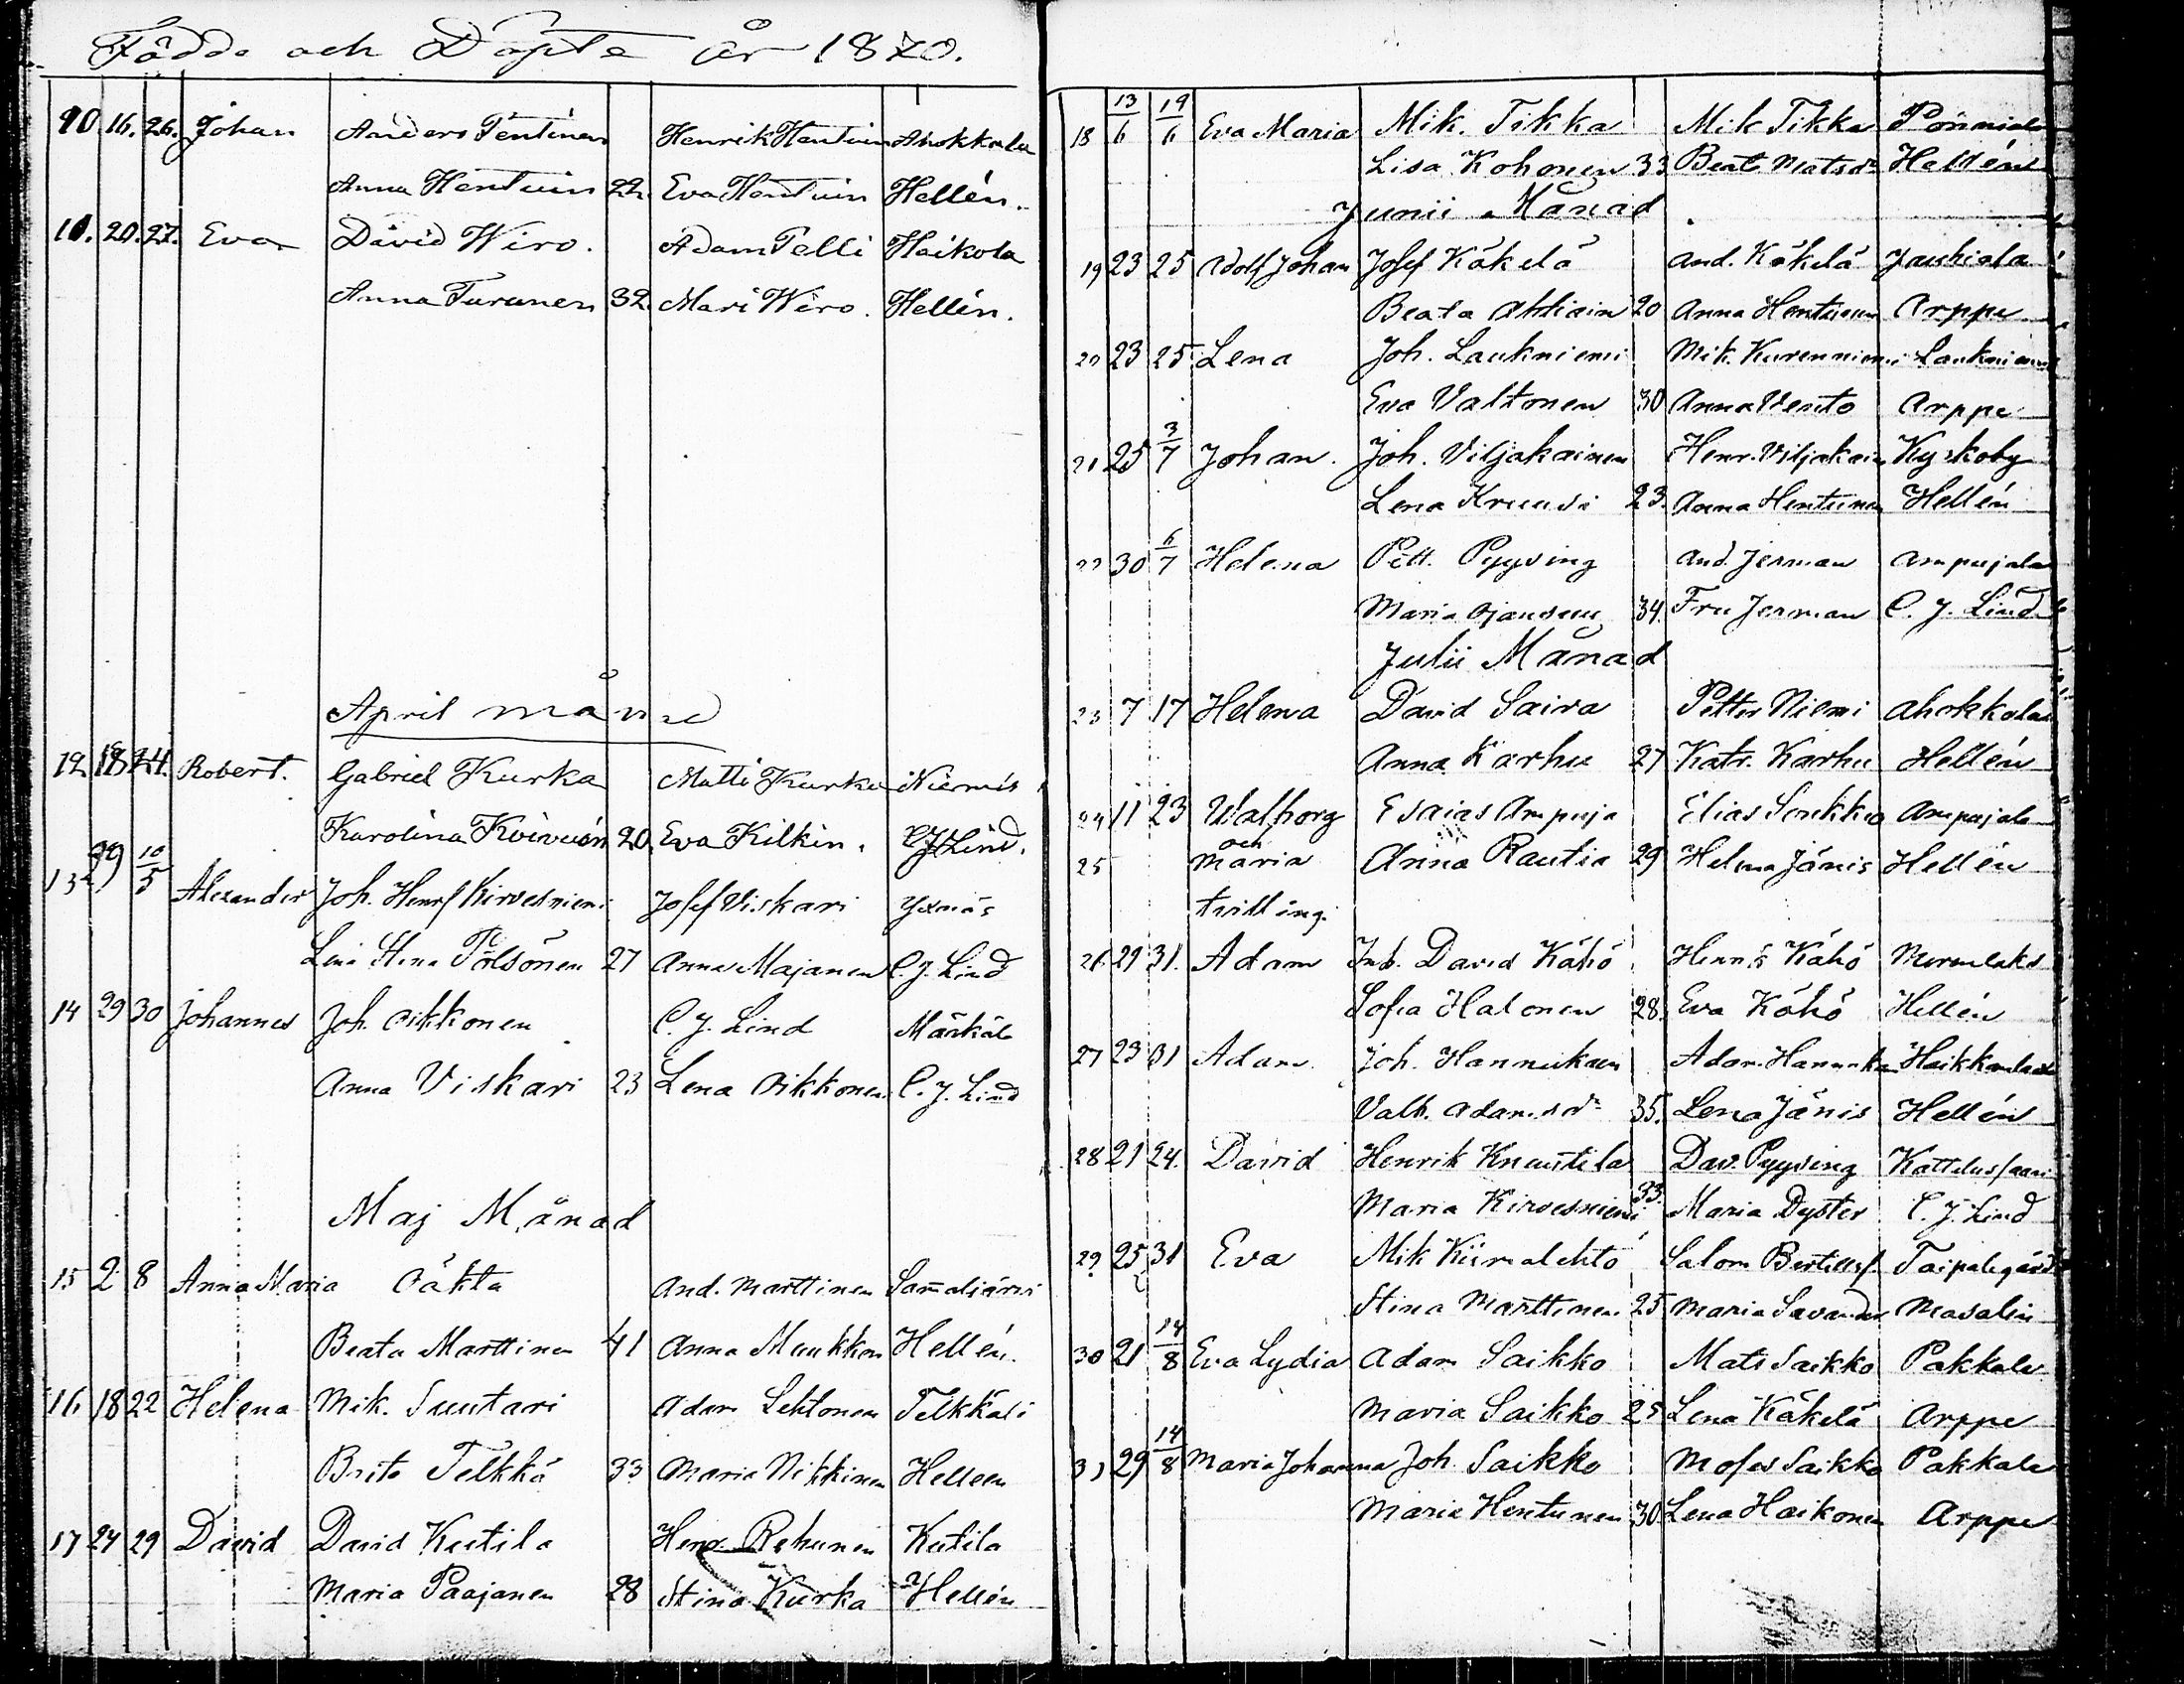 Födde och Döpte år 1870.
10 16. 26. Johan Anders Pentinen Henrik Hentuin Ahokkala
Anna Hentuin 22. Eva Hentuin Hellén.
11. 20. 27. Eva David Wiro. Adam Pelli Haikola
Anna Turunen 32. Mari Wiro. Hellén.
April månad
12 18 24. Robert. Gabriel Kurka Matti Kurka Niemis
Karolina Koivuin 20. Eva Kilkin. C J Lind.
13 29 10/5 Alexander Joh. Henr Kirvesniemi Josef Viskari
27 Anna Majanen C. J. Lind
14 29 30 Johannes Joh. Oikkonen C. J. Lind Märkäl
Anna Viskari 23 Lena Oikkonen C. J. Lind
Maj Månad
15 2 8 Anna Maria And. Marttinen Sam̄aljärvi
Beata Marttinen 41 Anna Muukkon Hellén.
16 18 22 Helena Mik. Suutari Adam Lehtonen Telkkäli
Brita Telkkä 33 Maria Nikkinen Helleen
17 24 29 David David Kutila Henr. Rehunen Kutila
Maria Paajanen 28 Stina Kurka Hellén
18 13/6 19/6 Eva Maria Mik. Tikka Mik Tikka
Lisa Kohonen 33 Beata Matsdr Hellén
Junii Månad
19 23 25 Adolf Johan Josef Käkelä And. Käkelä Jauhiala
Beata Ahtiain 20 Anna Hentunen Arppe
20 23 25 Lena Joh. Laukniemi Mik. Kurenniemi Laukniemi
Eva Valtonen 30 Anna Vento Arppe
21 25 3/7 Johan. Joh. Viljakainen Henr. Viljakain Kyrkoby
Lena Kruusi 23. Anna Hentunen Hellén
22 30 6/7 Helena Pett. Pyysing And. Jerman Ampujala
Maria 34. Fru Jerman C. J. Lind
Julii Månad
23 7 17 Helena David Saira Petter Niemi Ahokkala
Anna Karhu 27 Katr. Karhu Hellén
24 11 23 Walborg Esaias Ampuja Elias Sorkko Ampujala
och
25 Maria Anna Rautia 29 Helena Jänis Hellén
tvillingi
26 29 31. Adam Inh. David Kähö Henrs Kähö
Sofia Halonen 28. Eva Kähö Hellén
27 23 31 Adam. Joh. Hannukain Adam Hannuka
Valb. Adamsdr 35. Lena Jänis Hellén
28 21 24. David Henrik Knuutila Dav. Pyysing Kattelussaari
Maria Kirvesniemi 33. Maria Dyster C. J. Lind
29 25 31 Eva Mik Kiimalehto Salom Bertills. Taipalegård
Stina Marttinen. 25 Maria Savander Masalin
30 21 14/8 Eva Lydia Adam Saikko Mats Saikko Pakkala
Maria Saikko 25 Lena Käkelä Arppe
31 29 14/8 Maria Johanna Joh. Saikko Moses Saikko Pakkala
Maria Hentunen 30 Lena Haikonen Arppe